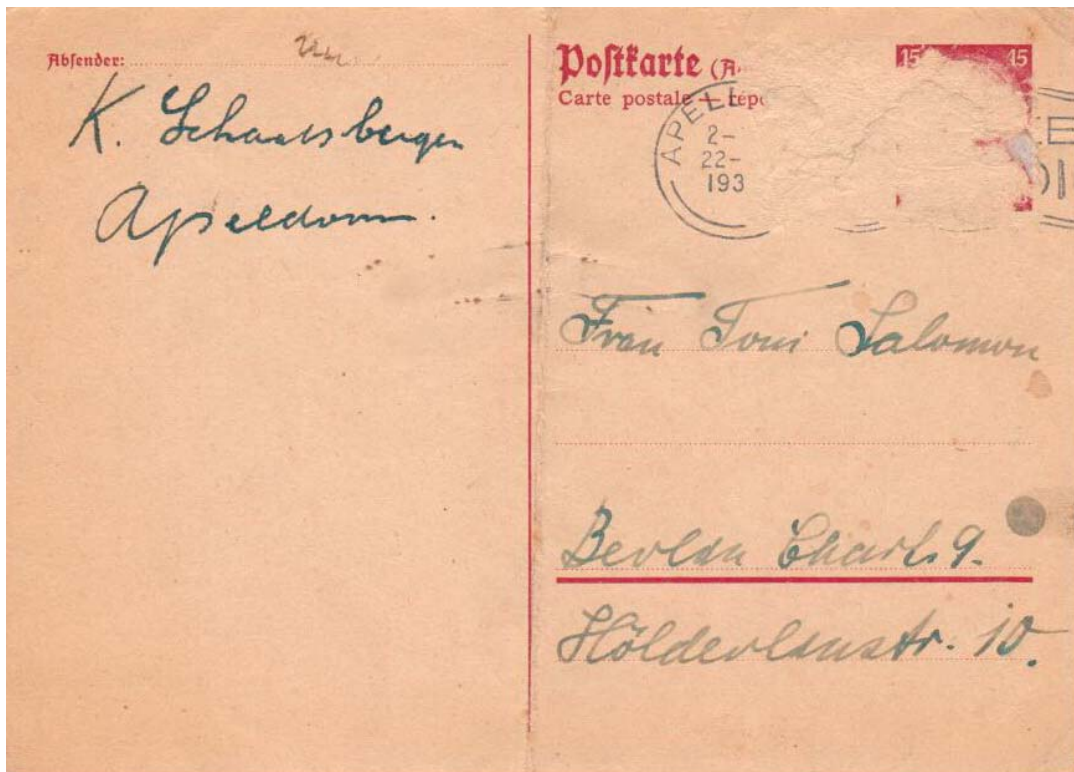 Absender:
K. Schaatsbergen
Apeldoorn.
Postkarte (A
Carte postale — répo
15 15
APELD
2-
22-
193
Frau Toni Salomon
Berlin Charl. 9.
Hölderlinstr. 10.